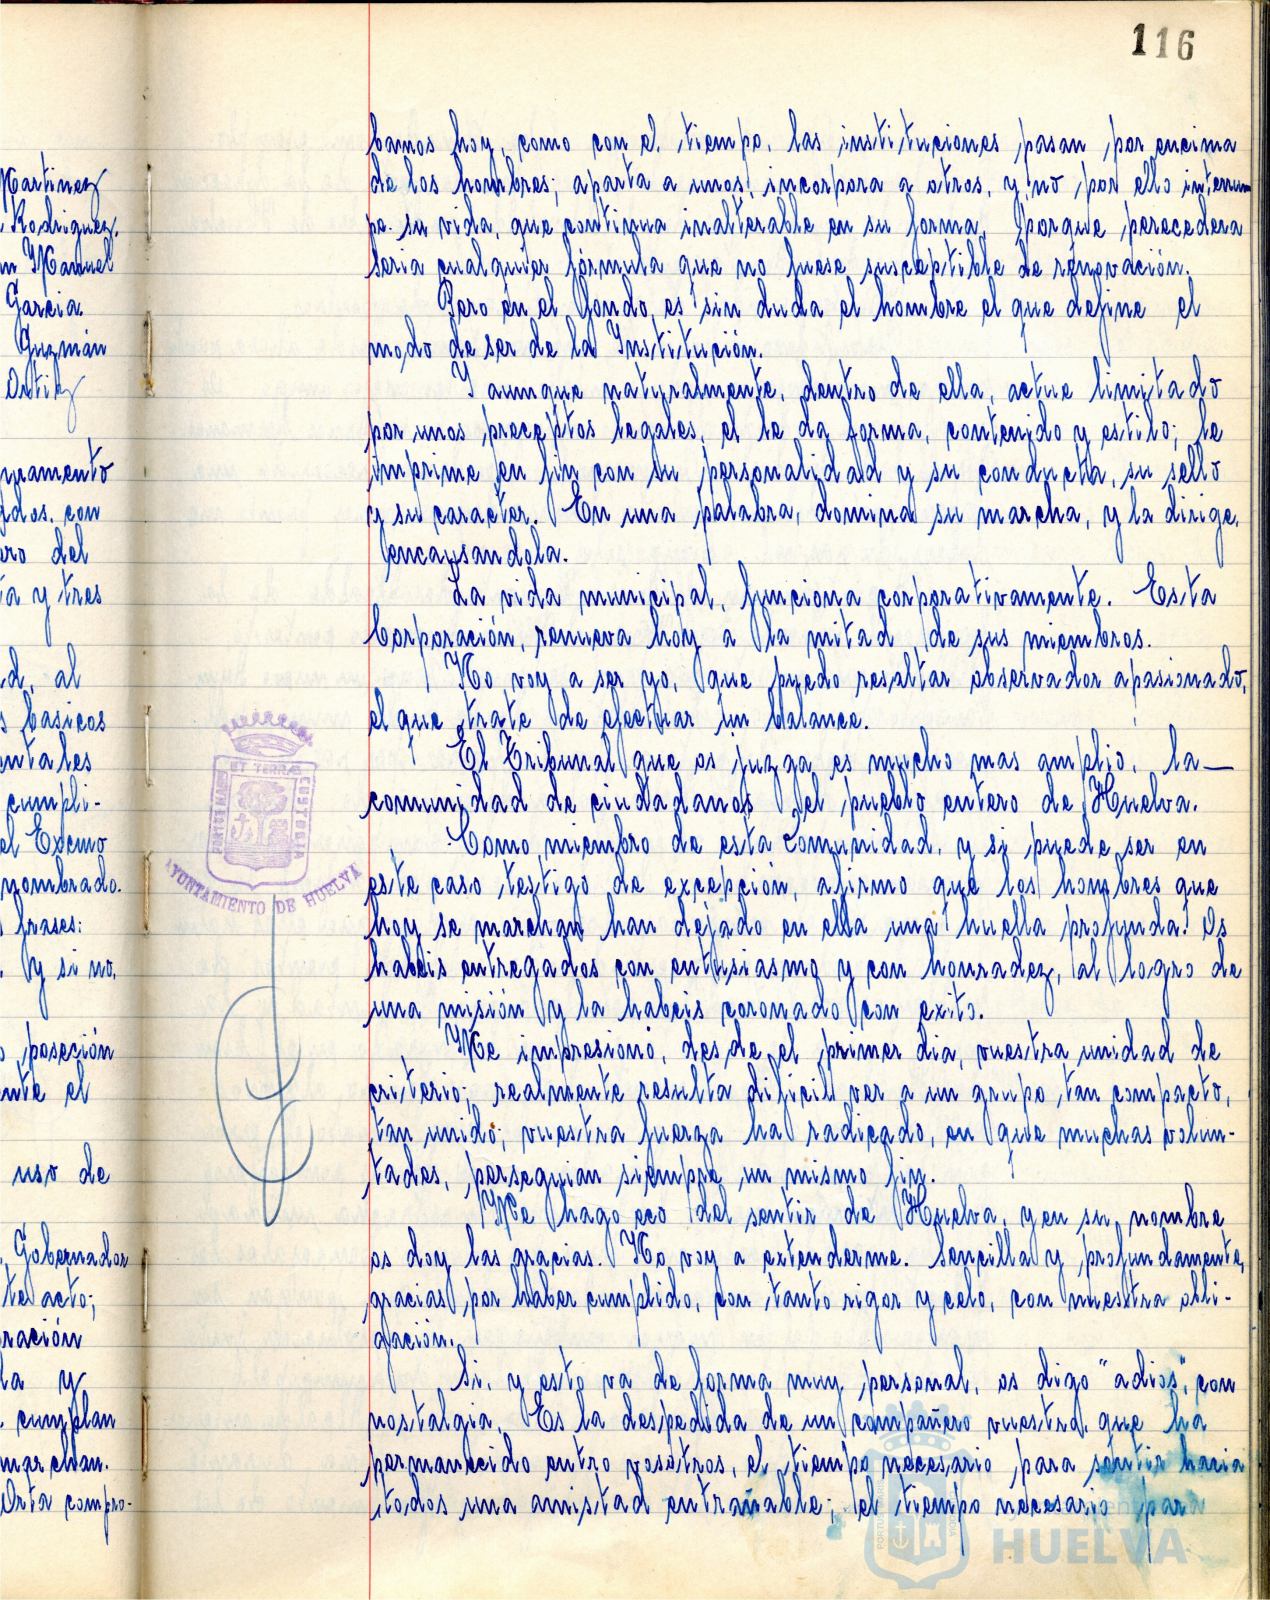 116
Martinez
Rodriguez.
Manuel
Garcia
Guzmán
Ortiz
juramento
con
del
y tres
al
basicos
cumpli-
el Excmo
nombrado.
frases:
y si no,
poseción
el
uso de
Gobernador
acto;
y
cumplan
marchan.
compro-
bamos hoy, como con el tiempo, las instituciones pasan por encima
de los hombres; aparta a unos, incorpora a otros, y no por ello interrum
pe su vida, que continua inalterable en su forma, porque perecedera
seria cualquier fórmula que no fuese susceptible de renovación.
Pero en el fondo, es sin duda el hombre el que define el
modo de ser de la Institución.
Y aunque naturalmente, dentro de ella, actue limitado
por unos preceptos legales, el le da forma, contenido y estilo; le
imprime en fin con su personalidad y su conducta, su sello
y su caracter. En una palabra, domina su marcha, y la dirige,
encausandola.
La vida municipal, funciona corporativamente. Esta
Corporación, renueva hoy a la mitad de sus miembros.
No voy a ser yo, que puedo resultar observador apasionado,
el que trate de efectuar un balance.
El Tribunal que os juzga es mucho mas amplio, la—
comunidad de ciudadanos el pueblo entero de Huelva.
Como miembro de esta Comunidad, y si puede ser en
este caso testigo de excepción, afirmo que los hombres que
hoy se marchan han dejado en ella una huella profunda! Os
habeis entregados con entusiasmo y con honradez, al logro de
una misión y la habeis coronado con exito.
Me impresionó, desde el primer dia, vuestra unidad de
criterio; realmente resulta dificil ver a un grupo tan compacto,
tan unido; vuestra fuerza ha radicado, en que muchas volun-
tades, perseguian siempre un mismo fin.
Me hago eco del sentir de Huelva, y en su nombre
os doy las gracias. No voy a extenderme. Sencilla y profundamente,
gracias por haber cumplido, con tanto rigor y celo, con nuestra obli-
gación.
Si, y esto va de forma muy personal, os digo "adios", con
nostalgia. Es la despedida de un compañero vuestro que ha
permanecido entre vosotros, el tiempo necesario para sentir hacia
todos una amistad entrañable; el tiempo necesario para
ET TERRÆ CUSTODIA
AYUNTAMIENTO DE HUELVA
HUELVA